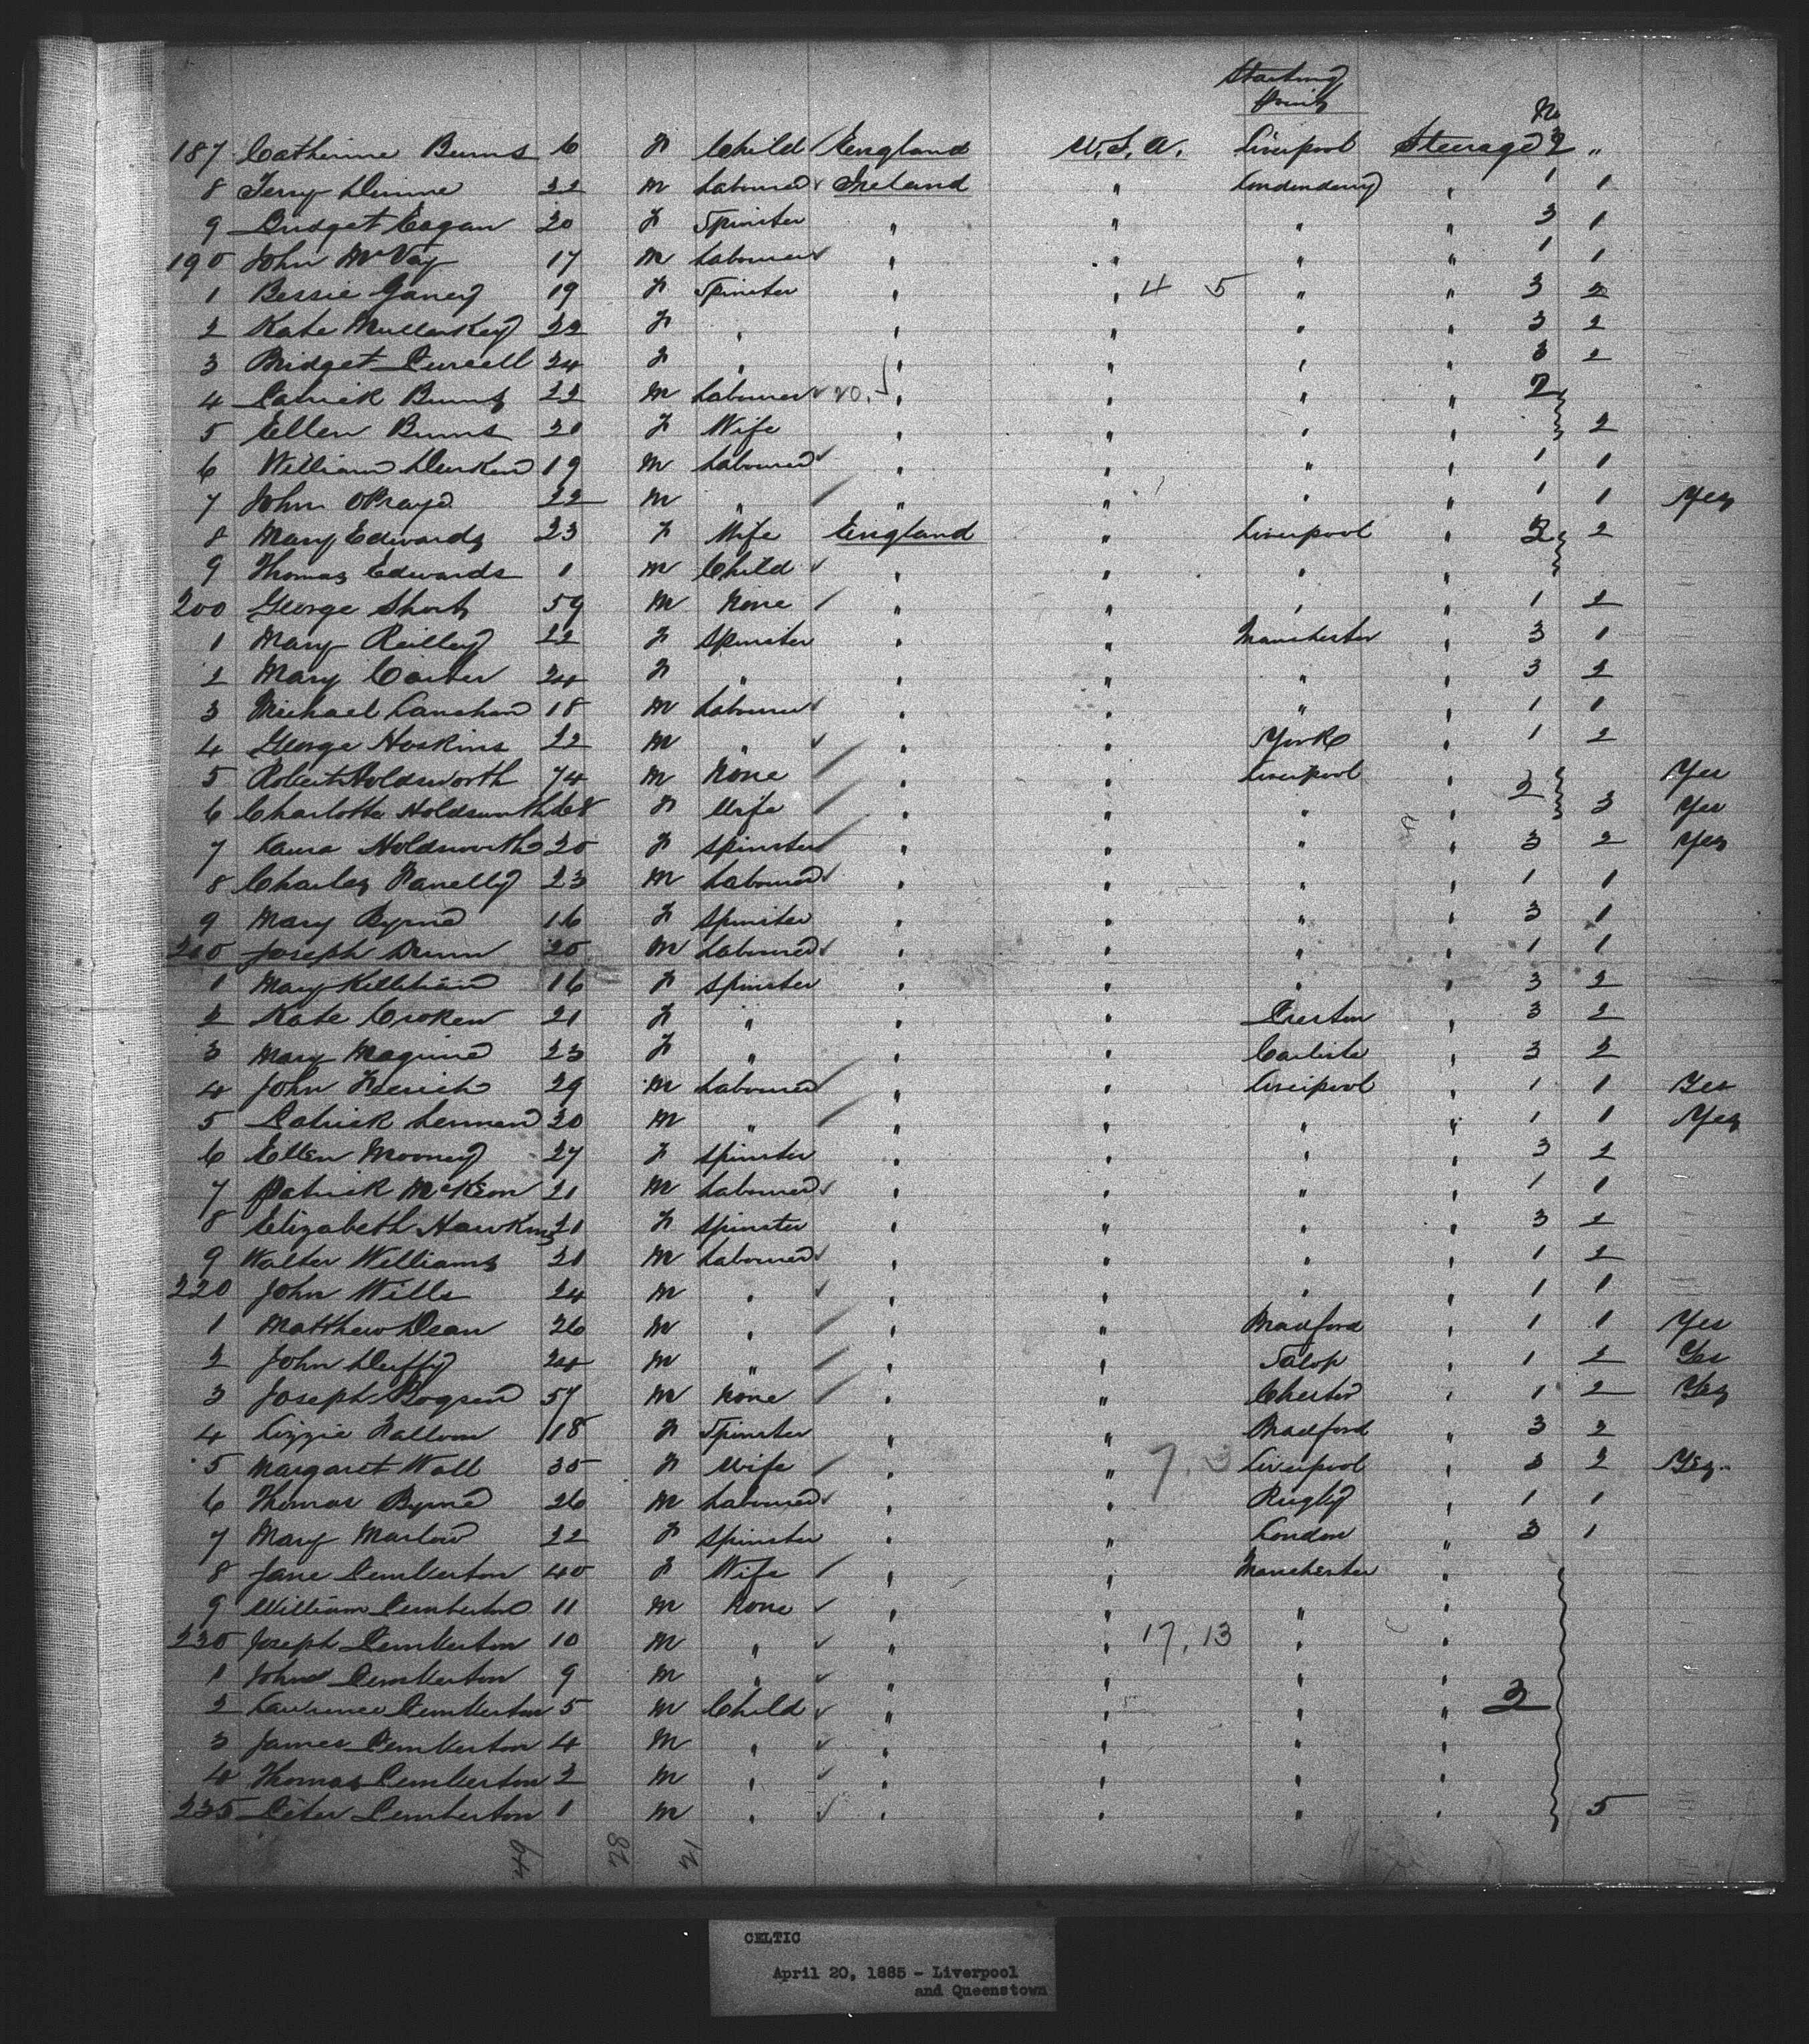 Starting
Point
No
187 Catherine Burns 6 F Child England U.S.A. Liverpool Steerage 2 "
8 Terry Dunne 22 M Labourer Ireland " Londonderry " 1 1
9 Bridget Eagan 20 F Spinster " " " " 3 1
190 John McVay 17 M Labourer " " " " 1 1
1 Bessie 19 F Spinster " " 4 5 " " 3 2
2 Kate Mullarkey 22 F " " " " " 3 2
3 Bridget Purcell 24 F " " " " " 3 2
4 Patrick Burns 22 M Labourer 20. " " " " 2
5 Ellen Burns 20 F Wife " " " " 2
6 William Durken 19 M Labourer " " " " 1 1
7 John 22 M " " " " " 1 1 Yes
8 Mary Edwards 23 F Wife England " Liverpool " 3 2
9 Thomas Edwards 1 M Child " " " "
200 George Short 59 M None " " " " 1 2
1 Mary Reilley 22 F Spinster " " Manchester " 3 1
2 Mary Carter 24 F " " " " " 3 2
3 Michael 18 M Labourer " " " " 1 1
4 George Hoskins 22 M " " " York " 1 2
5 Robert Holdsworth 74 M None " " Liverpool " 2 Yes
6 Charlotte Holdsworth 68 F Wife " " " " 3 Yes
7 Laura Holdsworth 20 F Spinster " " " " 3 2 Yes
8 Charles Fanelly 23 M Labourer " " " " 1 1
9 Mary Byrne 16 F Spinster " " " " 3 1
210 Joseph Dunn 20 M Labourer " " " " 1 1
1 Mary 16 F Spinster " " " " 3 2
2 Kate Croken 21 F " " " Preston " 3 2
3 Mary Maguire 23 F " " " Carlisle " 3 2
4 John 29 M Labourer " " Liverpool " 1 1 Yes
5 Patrick Lennan 30 M " " " " " 1 1 Yes
6 Ellen Mooney 27 F Spinster " " " " 3 2
7 Patrick McKeon 21 M Labourer " " " " 1 1
8 Elizabeth Hawkins 21 F Spinster " " " " 3 2
9 Walter Williams 21 M Labourer " " " " 1 2
220 John Wills 24 M " " " " " 1 1
1 Matthew Dean 26 M " " " Bradford " 1 1 Yes
2 John Duffy 24 M " " " Salop " 1 2 Yes
3 Joseph 57 M None " " Chester " 1 2 Yes
4 Lizzie Falloon 18 F Spinster " " Bradford " 3 2
5 Margaret Wall 35 F Wife " " 7, 3 Liverpool " 3 2 Yes
6 Thomas Byrne 26 M Labourer " " Rugby " 1 1
7 Mary Marlow 22 F Spinster " " London " 3 1
8 Jane Pemberton 40 F Wife " " Manchester "
9 William Pemberton 11 M None " " " "
230 Joseph Pemberton 10 M " " " 17, 13 " "
1 John Pemberton 9 M " " " " "
2 Lawrence Pemberton 5 M Child " " " " 3
3 James Pemberton 4 M " " " " "
4 Thomas Pemberton 2 M " " " " "
235 Peter Pemberton 1 M " " " " " 5
CELTIC
April 20, 1885 - Liverpool
and Queenstown